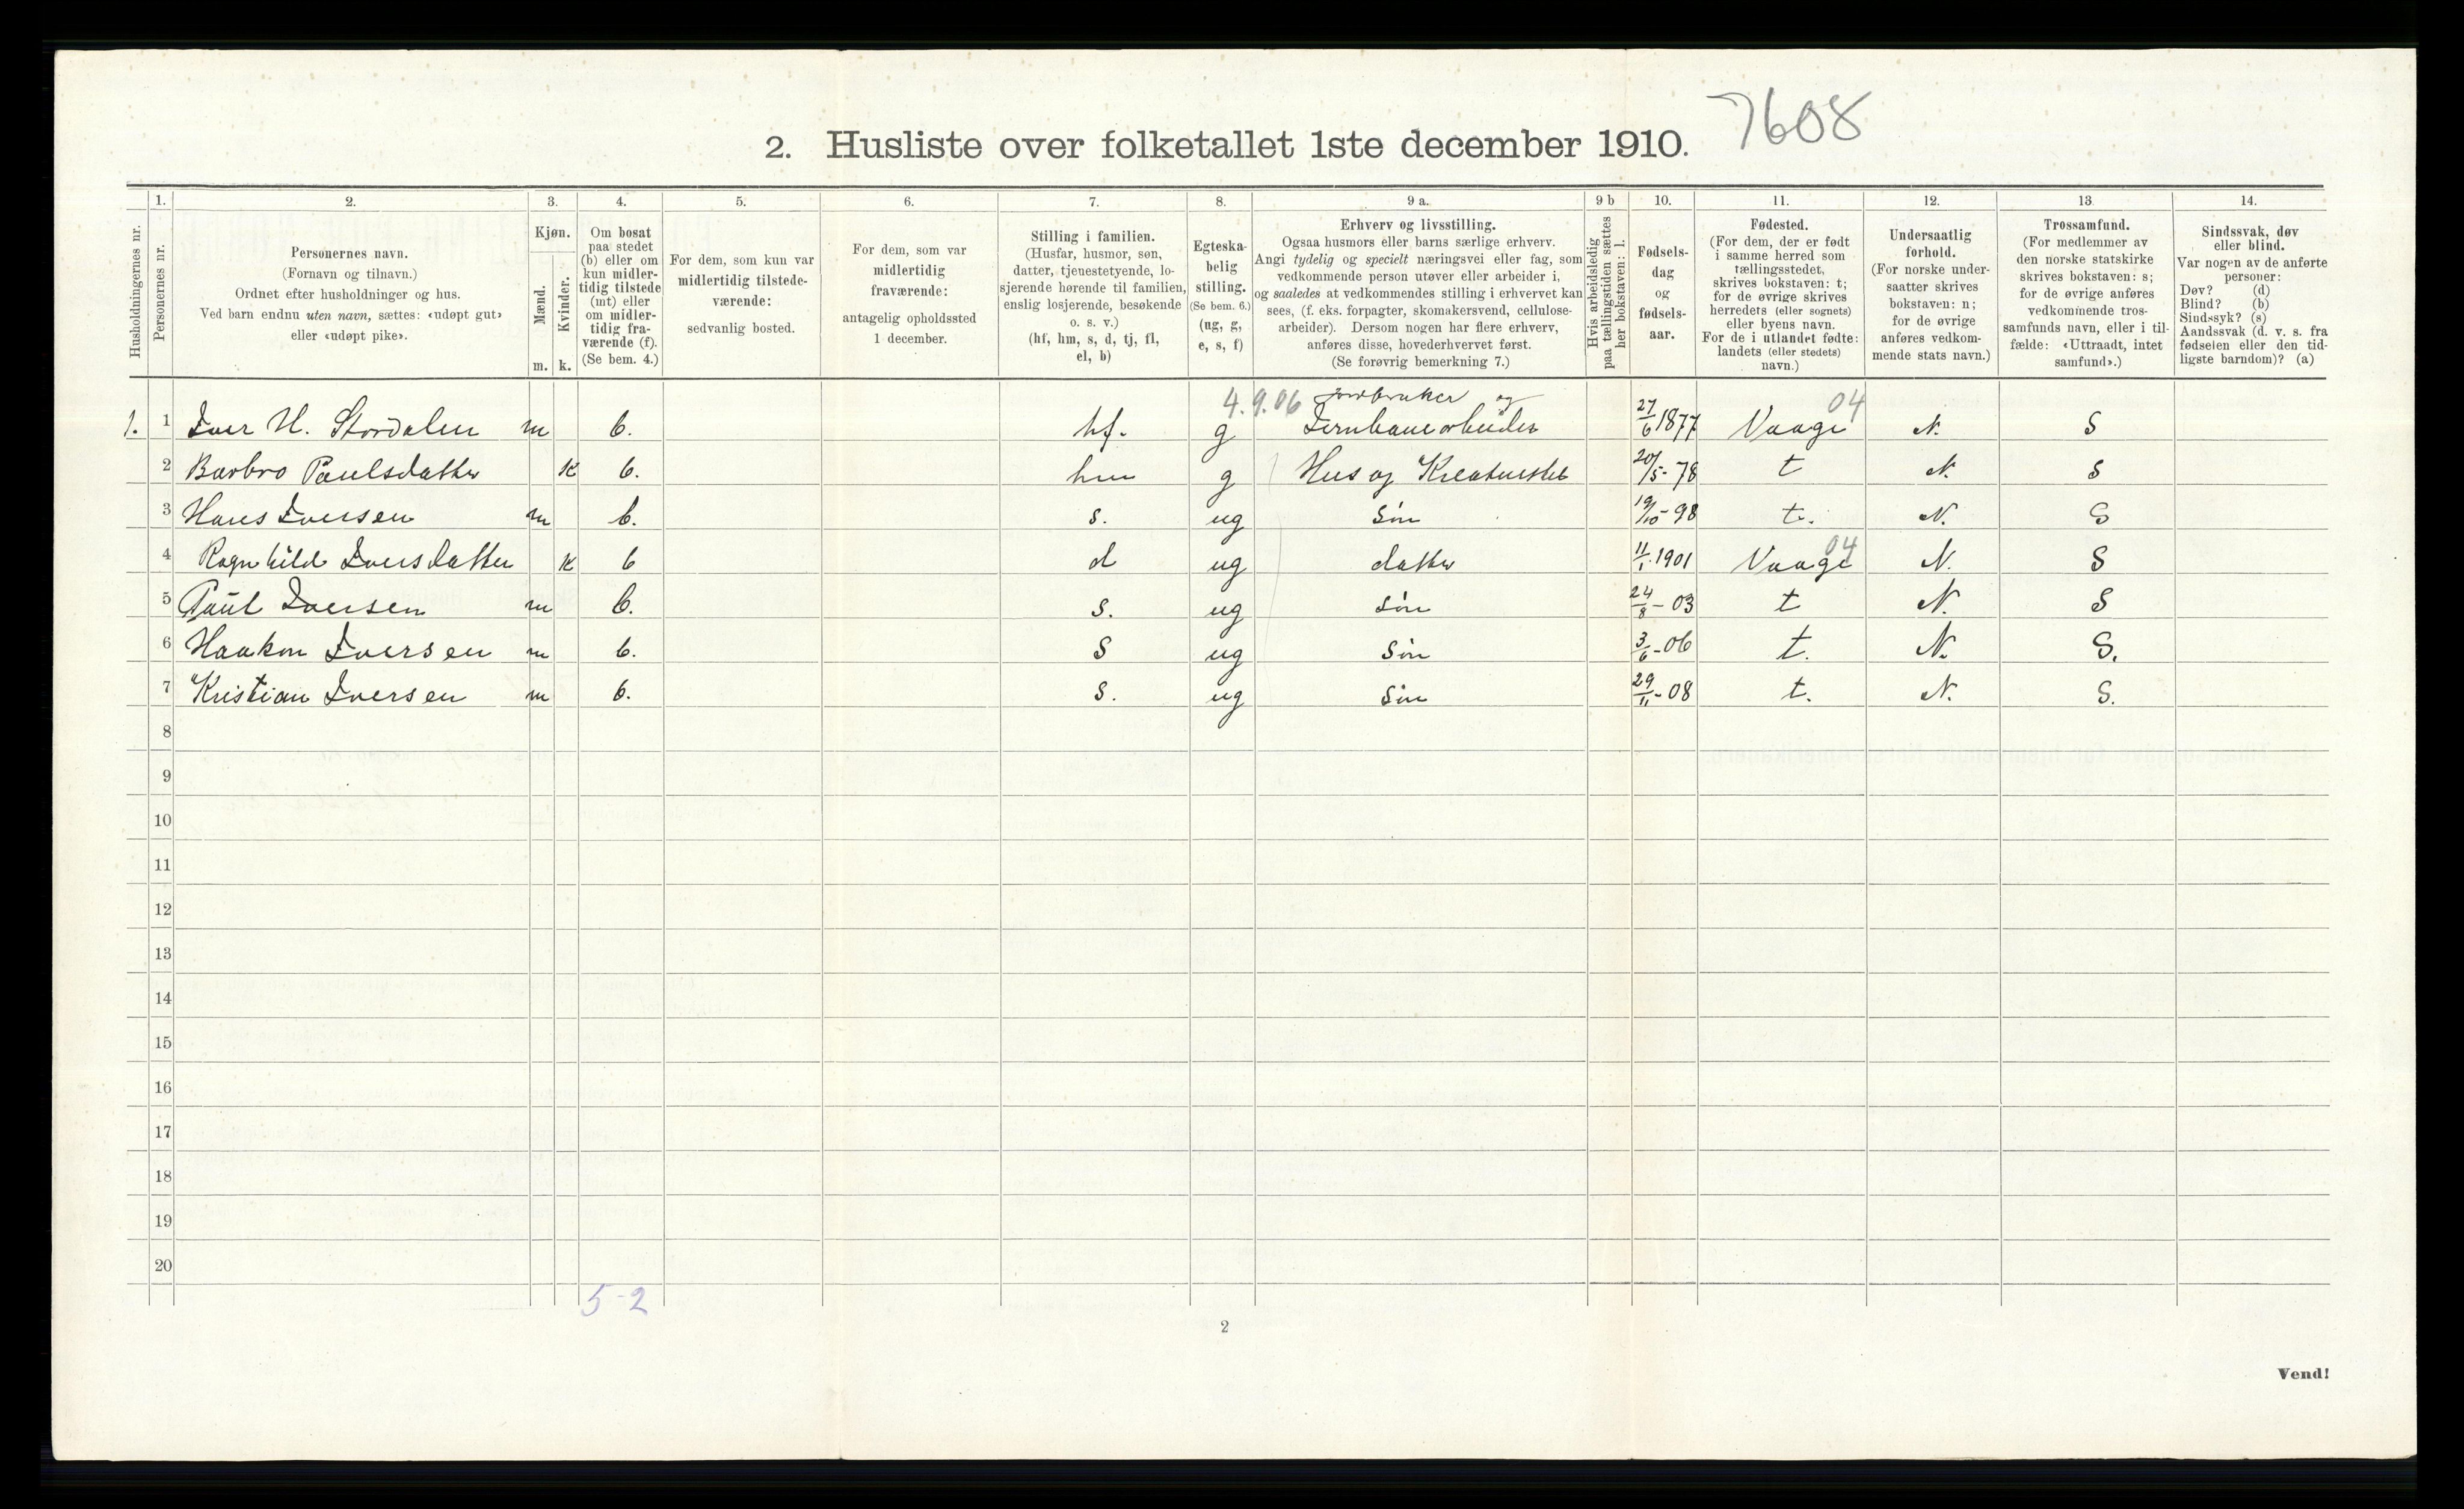 7608
2. Husliste over folketallet 1ste december 1910.
1. 2. 3. 4. 5. 6. 7. 8. 9 a. 9 b 10. 11. 12. 13 14.
Husholdningernes nr.
Personernes nr.
Personernes navn.
(Fornavn og tilnavn.)
Ordnet efter husholdninger og hus.
Ved barn endnu uten navn, sættes: «udøpt gut»
eller «udøpt pike».
Kjøn.
Mænd.
Kvinder.
m. k.
Om bosat
paa stedet
(b) eller om
kun midler-
tidig tilstede
(mt) eller
om midler-
tidig fra-
værende (f).
(Se bem. 4.)
For dem, som kun var
midlertidig tilstede-
værende:
sedvanlig bosted.
For dem, som var
midlertidig
fraværende:
antagelig opholdssted
1 december.
Stilling i familien.
(Husfar, husmor, søn,
datter, tjenestetyende, lo-
sjerende hørende til familien,
enslig losjerende, besøkende
o. s. v.)
(hf, hm, s, d, tj, fl,
el, b)
Egteska-
belig
stilling.
(Se bem. 6.)
(ug, g,
e, s, f)
Erhverv og livsstilling.
Ogsaa husmors eller barns særlige erhverv.
Angi tydelig og specielt næringsvei eller fag, som
vedkommende person utøver eller arbeider i,
og saaledes at vedkommendes stilling i erhvervet kan
sees, (f. eks. forpagter, skomakersvend, cellulose-
arbeider). Dersom nogen har flere erhverv,
anføres disse, hovederhvervet først.
(Se forøvrig bemerkning 7.)
Hvis arbeidsledig
paa tællingstiden sættes
her bokstaven: l.
Fødsels-
dag
og
fødsels-
aar.
Fødested.
(For dem, der er født
i samme herred som
tællingsstedet,
skrives bokstaven: t;
for de øvrige skrives
herredets (eller sognets)
eller byens navn.
For de i utlandet fødte:
landets (eller stedets)
navn.)
Undersaatlig
forhold.
(For norske under-
saatter skrives
bokstaven: n;
for de øvrige
anføres vedkom-
mende stats navn.)
Trossamfund.
(For medlemmer av
den norske statskirke
skrives bokstaven: s;
for de øvrige anføres
vedkommende tros-
samfunds navn, eller i til-
fælde: «Uttraadt, intet
samfund».)
Sindssvak, døv
eller blind.
Var nogen av de anførte
personer:
Døv? (d)
Blind? (b)
Sindssyk? (s)
Aandssvak (d. v. s. fra
fødselen eller den tid-
ligste barndom)? (a)
4.9.06 Jordbruker og 04
1. 1 Iver H. Stordalen m b. hf. g Jernbanearbeider 27/6 1877 Vaage N. S
2 Barbro Paulsdatter K b. hm g Hus og Kreaturstel 20/5-78 t N. S
3 Hans Iversen m b. s. ug Søn 19/10-98 t. N. S
04
4 Ragnhild Iversdatter K b d ug datter 11/1 1901 Vaage N. S
5 Paul Iversen m b. s. ug søn 24/8-03 t N. S
6 Haakon Iversen m b. S ug Søn 3/6-06 t. N. S.
7 Kristian Iversen m b. S. ug Søn 29/11-08 t. N. S.
8
9
10
11
12
13
14
15
16
17
18
19
20
5-2
2
Vend!